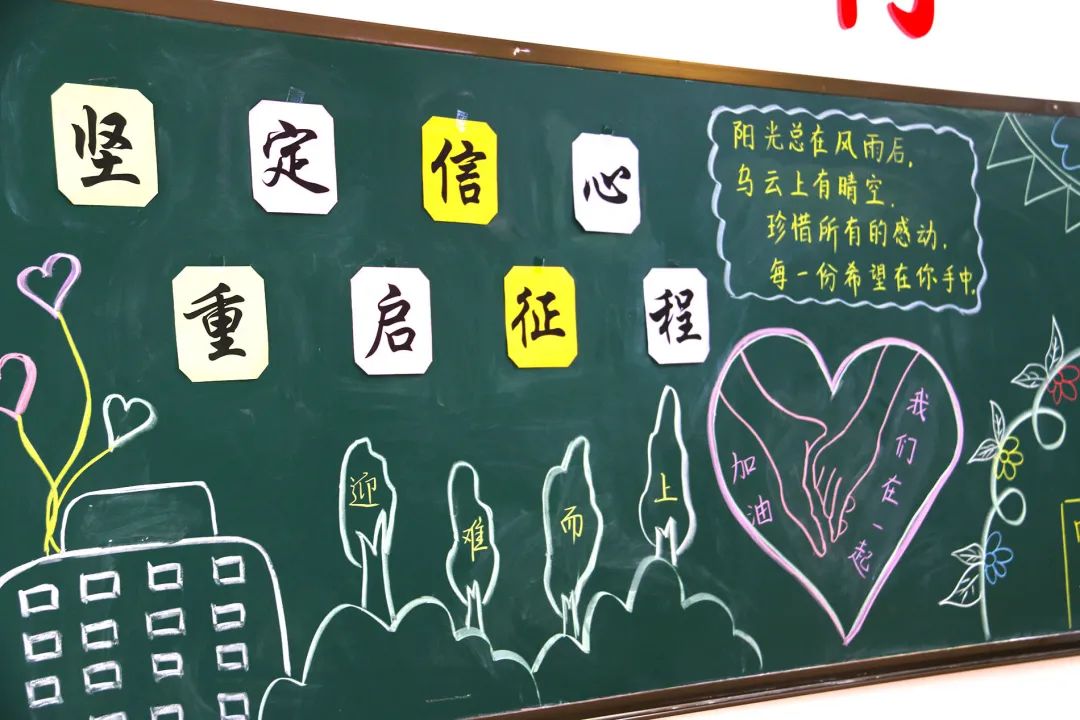 坚定信心
重启征程
阳光总在风雨后,
乌云上有晴空.
珍惜所有的感动.
每一份希望在你手中.
迎难而上
加油
我们在一起